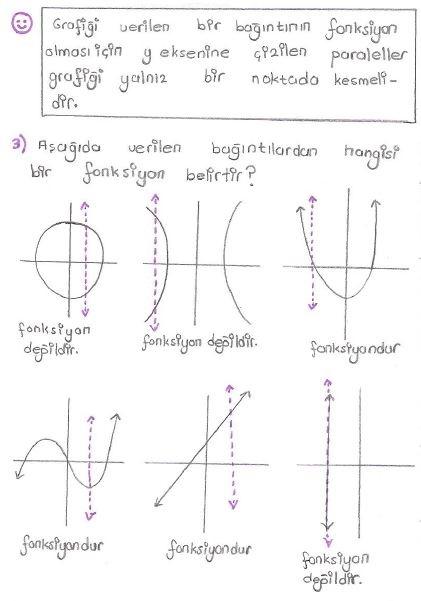 Grafiği verilen bir bağıntının fonksiyon
olması için y eksenine çizilen paraleller
grafiği yalnız bir noktada kesmeli-
dir.
3) Aşağıda verilen bağıntılardan hangisi
bir fonksiyon belirtir?
fonksiyon
değildir.
fonksiyon değildir.
fonksiyondur
fonksiyondur
fonksiyondur
fonksiyon
değildir.